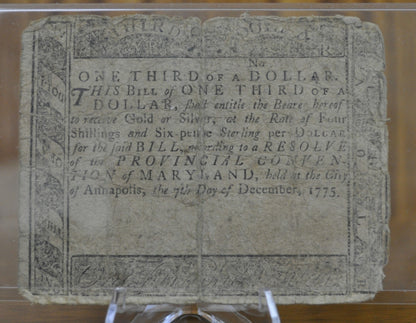 THIRD OF A DOLLAR
No
ONE THIRD OF A DOLLAR.
THIS BILL of ONE THIRD OF A
DOLLAR, shall entitle the Bearer hereof
to receive Gold or Silver, at the Rate of Four
Shillings and Six-pence Sterling per DOLLAR
for the said BILL, according to a RESOLVE
of the PROVINCIAL CONVEN-
TION of MARYLAND, held at the City
of Annapolis, the 7th Day of December, 1775.